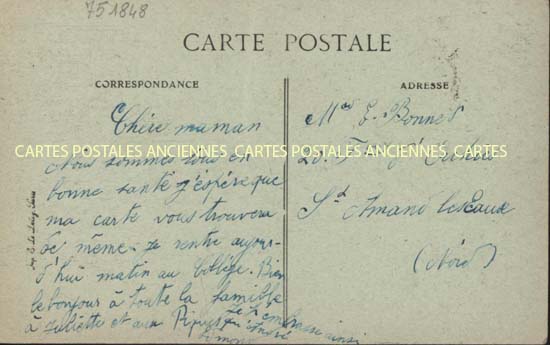 751848
CARTE POSTALE
CORRESPONDANCE
Chère maman
CARTES POSTALES ANCIENNES
Nous sommes tous en
bonne santé j'éspére que
ma carte vous trouvera
de même. Je rentre aujour-
d'hui matin au Collège. Bien
le bonjour à toute la famille
à Juliette et aux
Je t'embrasse ainsi
ADRESSE
Bonnet
CARTES POSTALES ANCIENNES
St Amand les Eaux
(Nord)